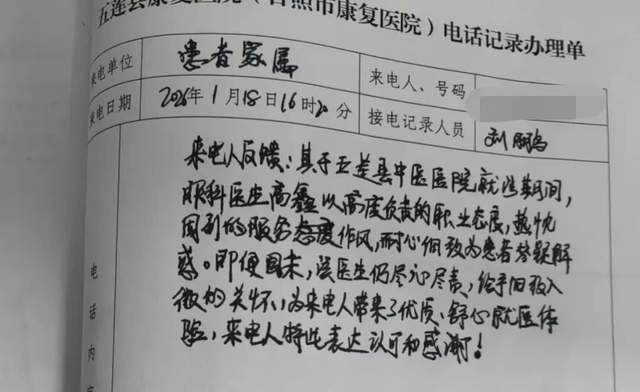 五莲县康复医院（日照市康复医院）电话记录办理单
来电单位 患者家属 来电人、号码
来电日期 2026年1月18日16时20分 接电记录人员 刘鹏
来电人反馈：其于五莲县中医医院就诊期间，
眼科医生高鑫以高度负责的职业态度，热忱
周到的服务态度作风，耐心细致为患者答疑解
惑。即便周末，该医生仍尽心尽责，给予细致入
微的关怀，为来电人带来了优质、舒心就医体
验，来电人特此表达认可和感谢！
电话内容